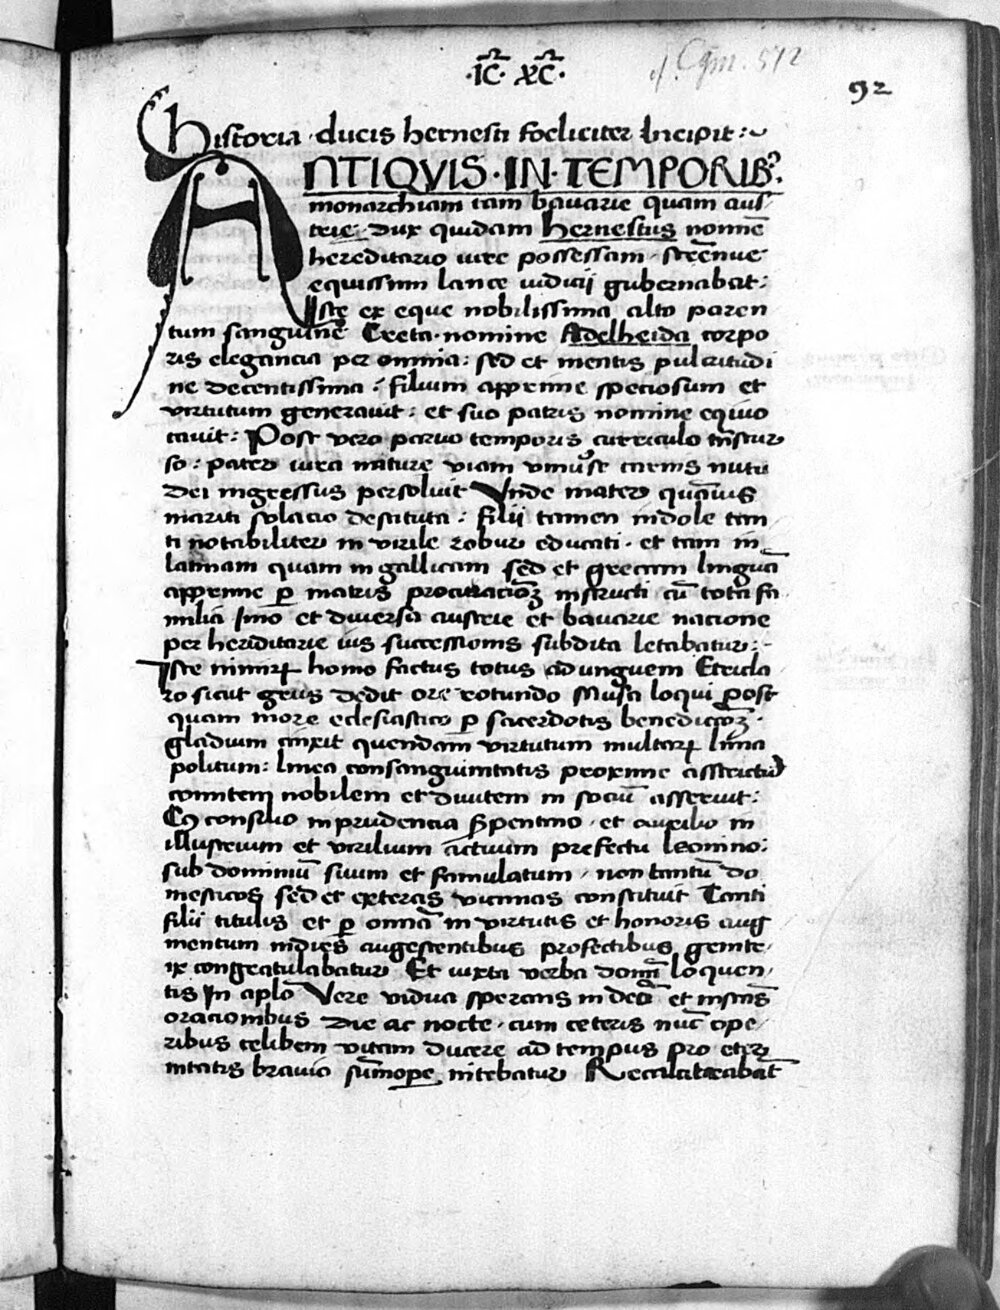 ·IC· XC·
cf. Cgm. 572
92
Historia ducis hernesti foeliciter Incipit:
ANTIQVIS·IN·TEMPORIB⁹
monarchiam tam bauarie quam aus/
trie· dux quidam hernestus nomīe
hereditario iure possessam· strēnue
equissimi lance iudicii gubernabat:
Iste ex eque nobilissima alto paren
tum sanguine Creta· nomine Adelheida corpo
ris elegancia per omnia: sed et mentis pulcritudi
ne decentissima: filium apprime speciosum et
virtutum generauit: et suo patris nomine equiuo
cauit: Post vero paruo temporis curriculo trāscur
so: pater iuxta nature viam vniuērse carnis nutu
dei ingressus persoluit Vnde mater quāuis
mariti solacio destituta: filii tamen indole tan
ti notabiliter in virile robur educati· et tam in
latinam quam in gallicam sed et grecam linguā
apprime ꝑ matris procuracioēꝫ instructi cū tota fa
milia Imo et diuersa austrie et bauarie nacione
per hereditarie ius successionis subdita letabatur:
Iste nimirꝝ homo factus totus ad unguem Et cla
ro sicut greiis dedit ore rotundo Musa loqui ꝑost
quam more eclesiastico ꝑ sacerdotis benedictōēꝫ·
gladium cinxit quendam virtutum multarꝝ lima
politum: linea consanguinitatis proxime
comitem nobilem et diuitem in sociū asseruit:
Cꝯ consilio in prudencia ẜpentino· et auxilio in
illustrium et virilium actuum prefectu leonino:
sub dominiū suum et famulatum· non tantū do
mesticos sed et exteras vicinias constituit Tanti
filii titulis et ꝑ omīa in virtutis et honoris aug
mentum indies augescentibus profectibus genite/
ix congratulabatur Et iuxta verba domī loquen/
tis In aplo Vere vidua sperans in deo et instās
oracionibus die ac nocte· cum ceteris nūc ope/
ribus celibem vitam ducere ad tempus pro eter
nitatis brauio sūmope nitebatur Recalcitrabat